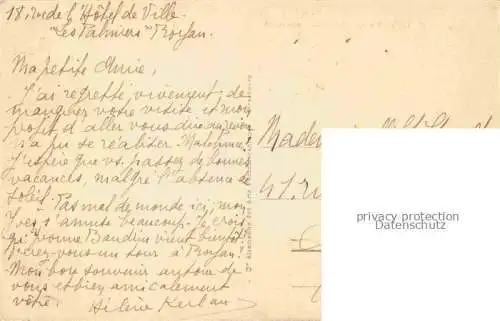 18, rue de l'Hôtel de Ville.
"Les Palmiers" Royan.
Ma petite Amie,
J'ai regretté vivement de
manquer votre visite et mon
projet d'aller vous dire au revoir
n'a pu se réaliser.
J'espère que vs. passez de bonnes
vacances, malgré l'absence de
soleil. Pas mal de monde ici, mon
Yves s'amuse beaucoup. Je crois
qu' Yvonne Baudin vient bientôt
Ferez-vous un tour à Royan.
Mon bon souvenir autour de
vous et bien amicalement
vôtre.
Hélène Kerlau
47, rue
privacy protection
Datenschutz